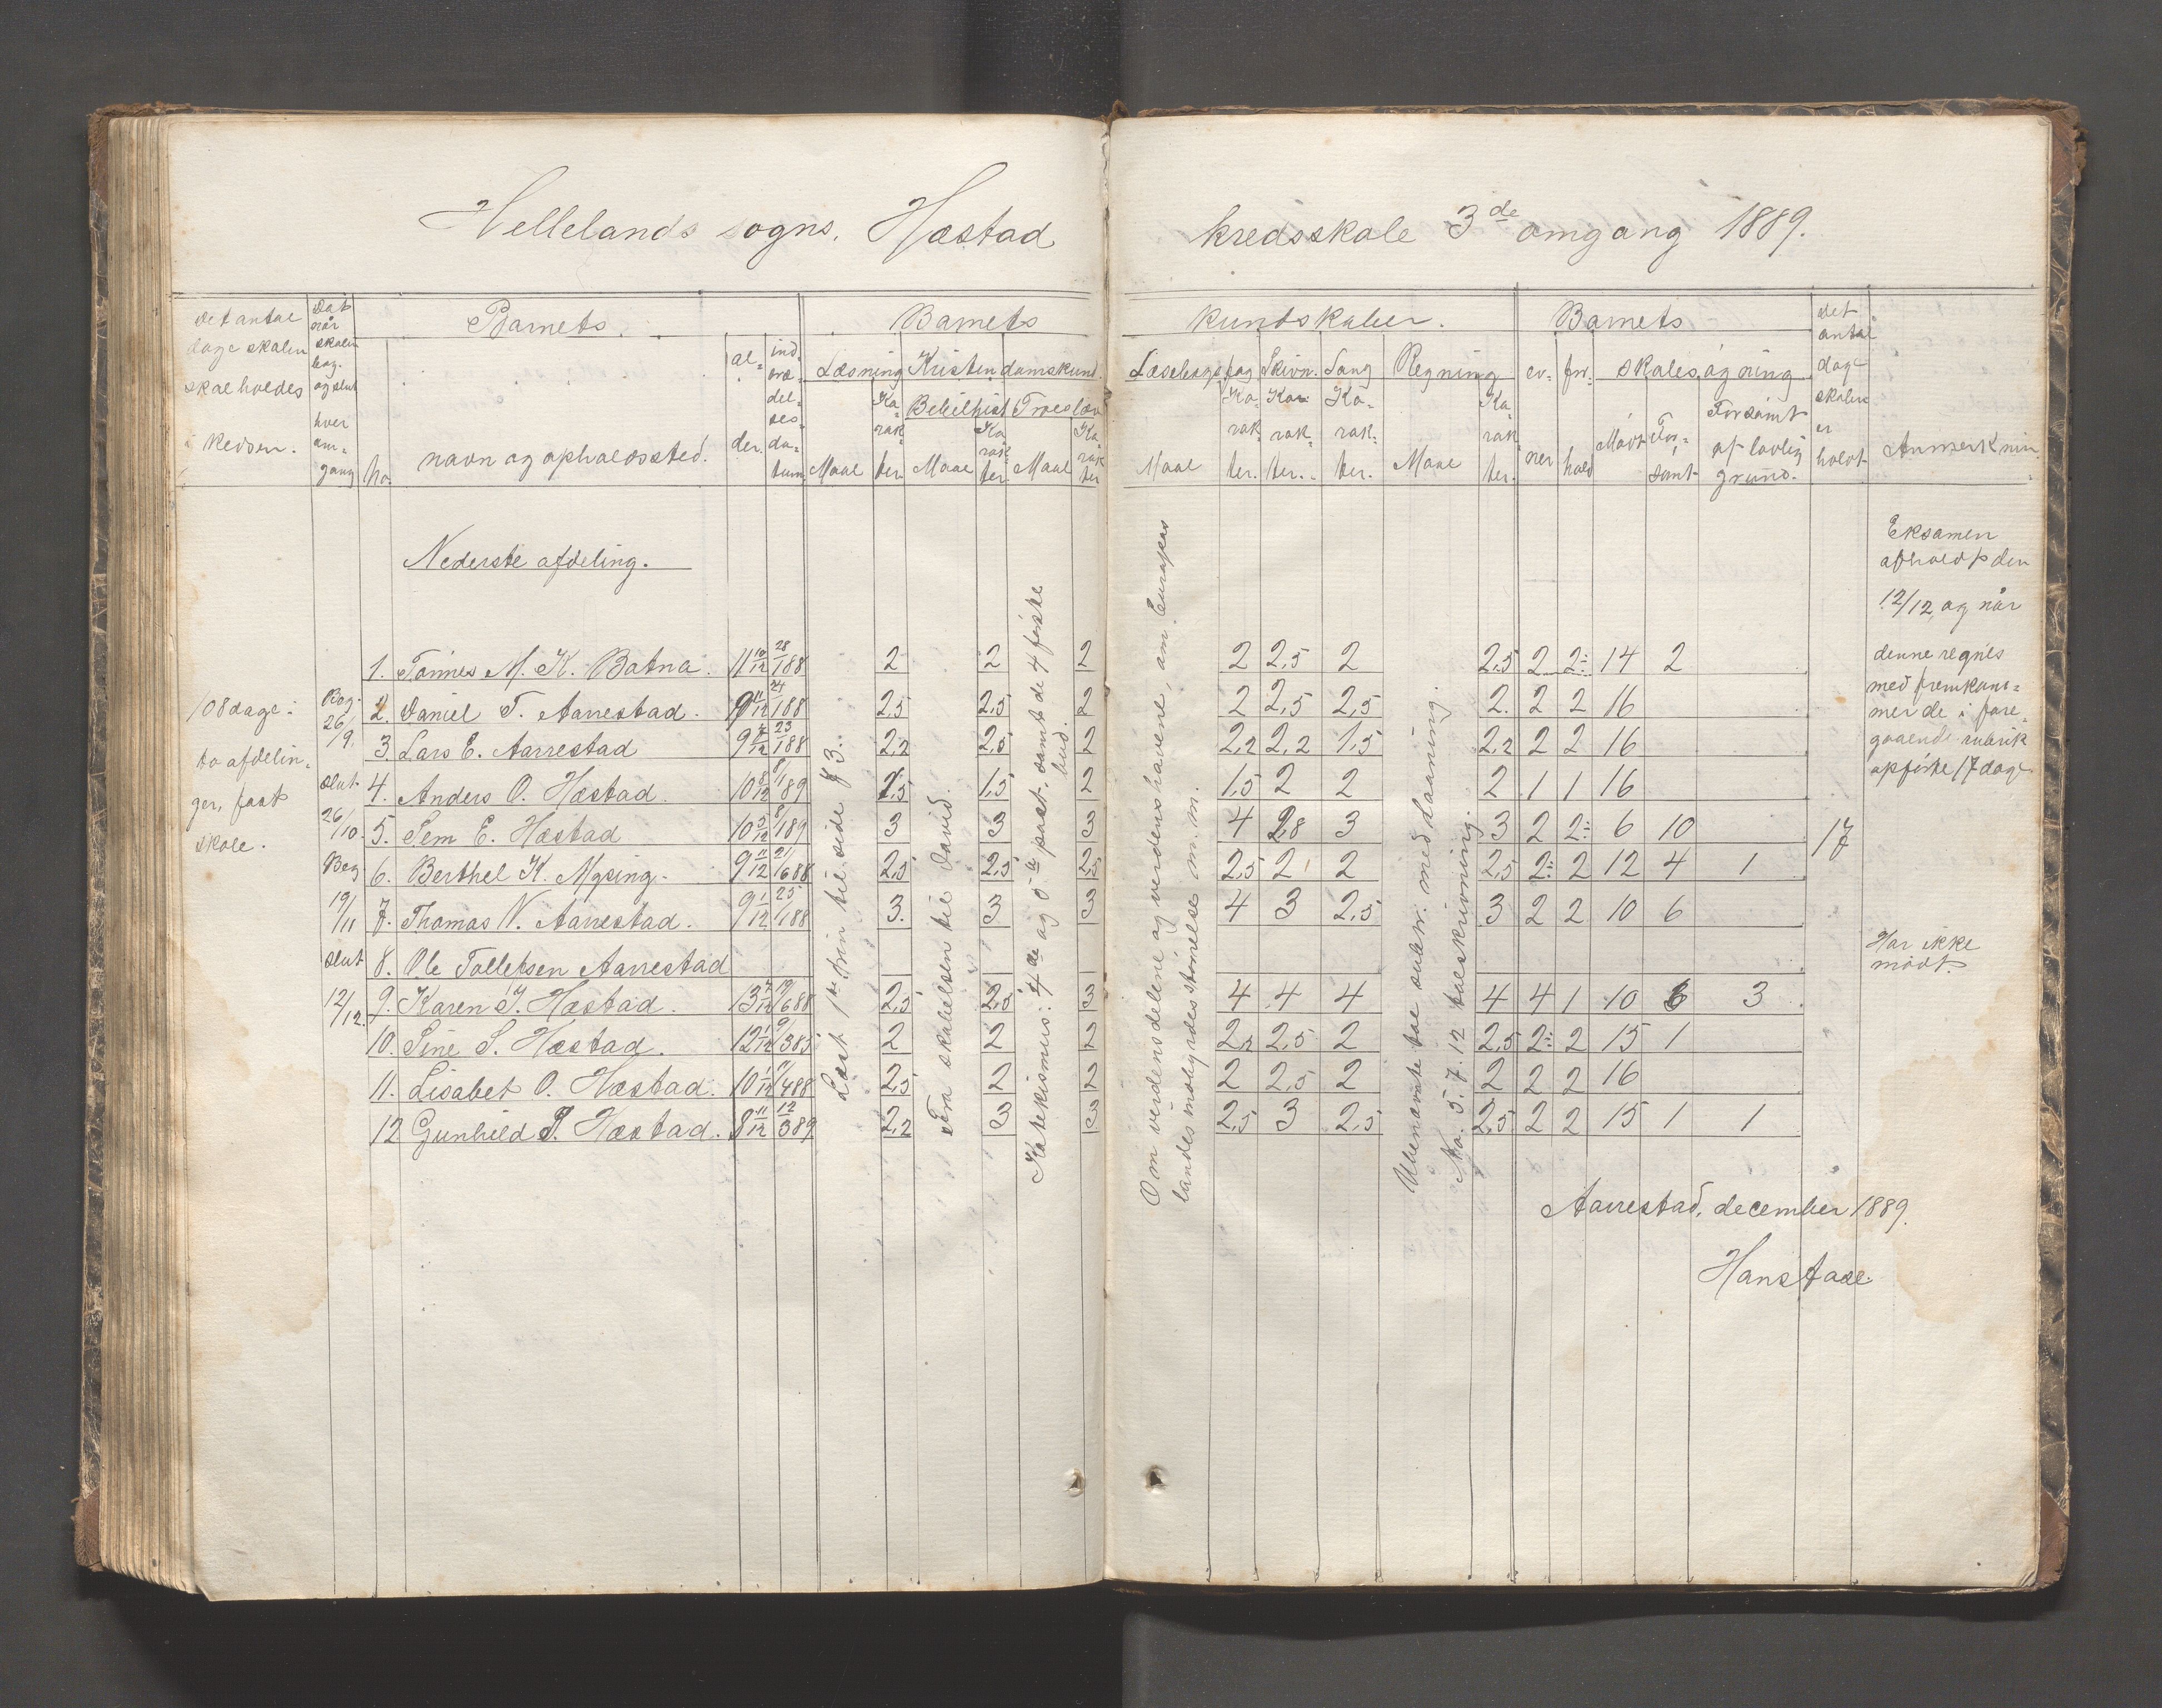 Hellelands sogns, Hæstad kredsskole 3de omgang 1889.
Det antal dage skolen skal holdes i kredsen.
Dat når skolen beg. og slut hver om- gang
Barnets
no. navn og opholdssted. al- der. ind- træ- del- ses- da- tum
Barnets kundskaber.
Læsning Kristendomskund.
Maal Ka- rak- ter.
Bibelhist Troeslær
Maal Ka- rak- ter. Maal Ka- rak- ter
Læsebogs fag Skrivn. Sang Regning
Maal Ka- rak- ter. Ka- rak- ter. Ka- rak- ter. Maal Ka- rak- ter.
Barnets
ev- ner for- hold skolesøgning
Mødt For- sømt Forsømt af lovlig grund.
det antal dage skolen er holdt
Anmerknin.
Nederste afdeling.
108 dage i to afdelin- ger, fast skole.
Beg. 26/9. slut 26/10. Beg 19/11 slut 12/12.
1. Tønnes M. K. Botna. 11 10/12 28/1 88 2 2 2 2 2,5 2 2,5 2 2÷ 14 2
2. Daniel T. Aarrestad. 9 11/12 24/1 88 2,5 2,5 2 2 2,5 2,5 2. 2 2 16
3. Lars E. Aarrestad 9 4/12 23/1 88 2,2 2,5 2 2,2 2,2 1,5 2,2 2 2 16
4. Anders O. Hæstad. 10 8/12 8/1 89 1,5 1,5 2 1,5 2 2 2 1 1 16
5. Sem E. Hæstad 10 5/12 8/1 89 3 3 3 4 2,8 3 3 2 2÷ 6 10
6. Berthel K. Mysing. 9 11/12 21/6 88 2,5 2,5 2,5 2,5 2 2 2,5 2÷ 2 12 4 1
7. Thomas N. Aarrestad. 9 1/12 25/1 88 3. 3 3 4 3 2,5 3 2 2 10 6
8. Ole Tollefsen Aarrestad
9. Karen J. Hæstad. 13 7/12 19/6 88 2,5 2,5 3 4 4 4 4 4 1 10 6 3
10. Sine S. Hæstad. 12 1/12 9/3 85 2 2 2 2,2 2,5 2 2,5 2÷ 2 15 1
11. Lisabet O. Hæstad. 10 1/12 11/4 88 2,5 2 2 2 2,5 2 2 2 2 16
12 Gunhild P. Hæstad. 8 11/12 12/3 89 2,2 3 3 2,5 3 2,5 2,5 2 2 15 1 1
Læst 1ste trin til side 83.
Fra skabelsen til David.
Katekismus: 4de og 5te part, samt de 4 første bud.
Om verdensdelene og verdenshavene, om Europas
landes indbyrdes størrelse m. m.
Ubenævnte tal subtr. med laaning.
No. 5. 7. 12 talskrivning.
17
Eksamen afholdt den 12/12, og når denne regnes med fremkom- mer de i fore- gaaende rubrik opførte 17 dage.
Har ikke mødt.
Aarrestad, december 1889.